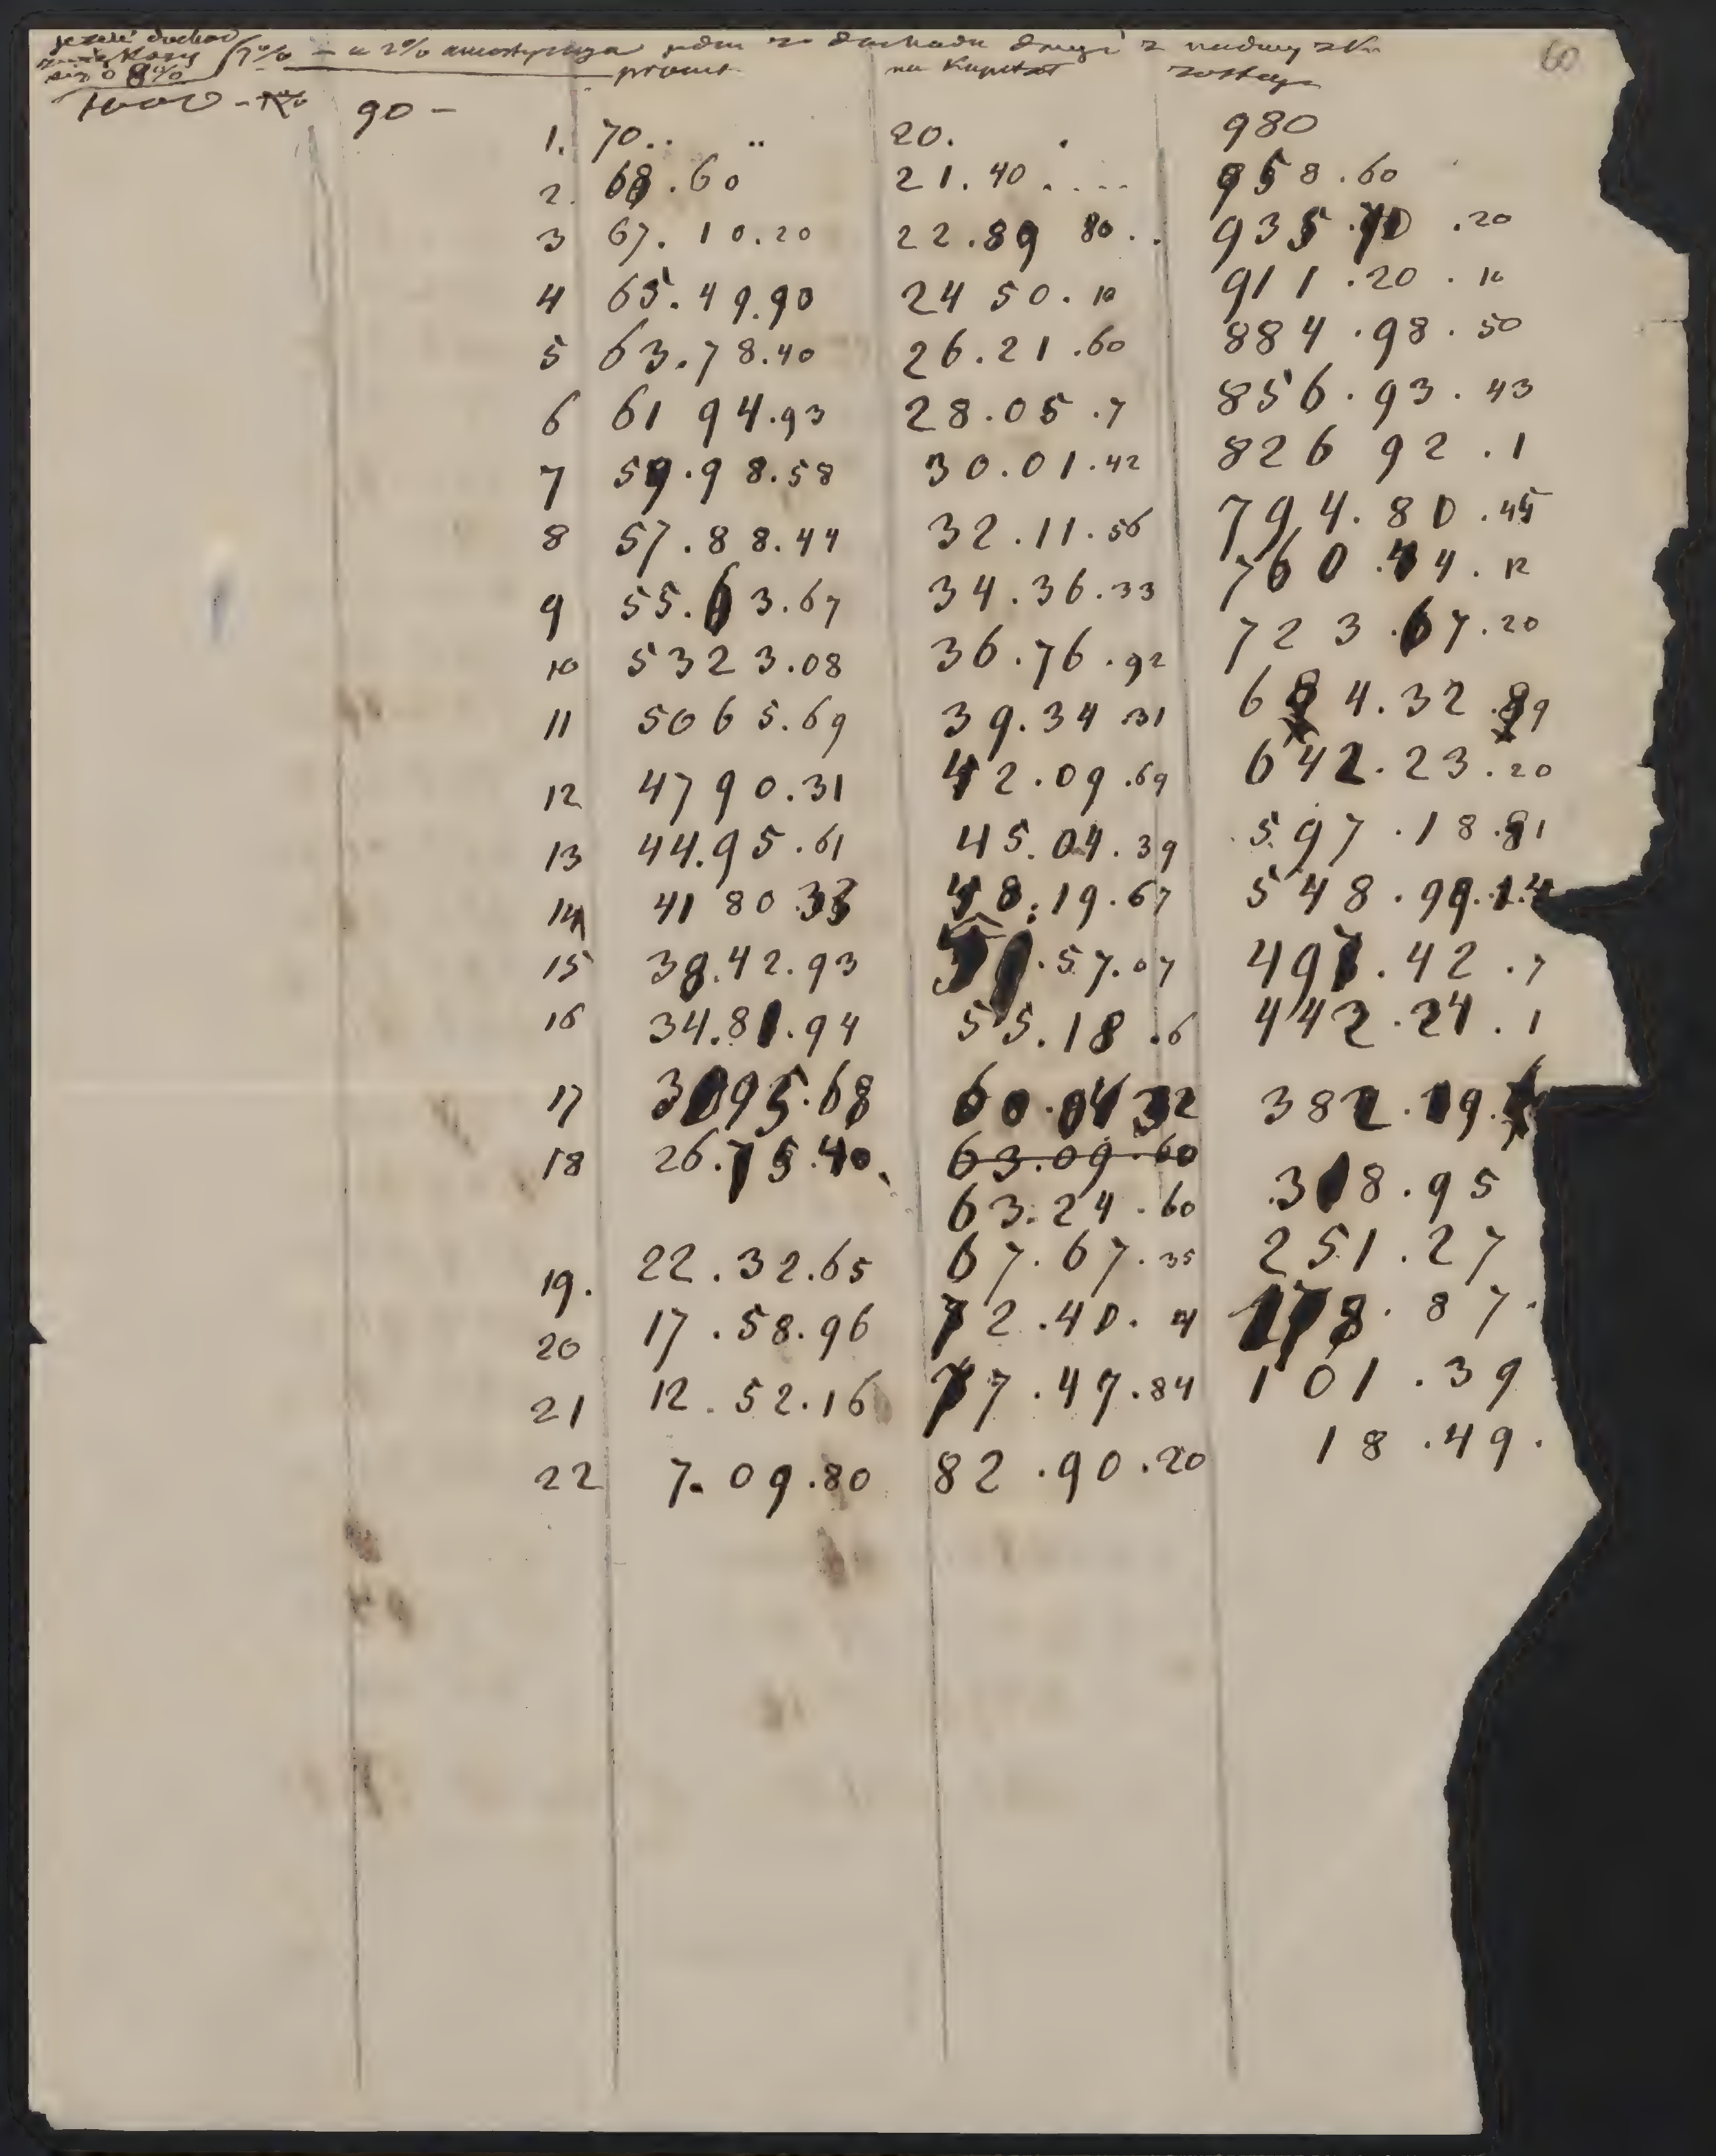 jeżeli dochod 7% — a 2% amortyzuja z dochodu drugi z 60
o 8% procent na Kapitał zostaje
1000 - 90 -
1. 70.. .. 20. . 980
2. 68.60 21.40.... 958.60
3 67.10.20 22.89 80.. 935.70.20
4 65.49.90 24 50.10 911.20.10
5 63.78.40 26.21.60 884.98.50
6 61 94.93 28.05.7 856.93.43
7 59.98.58 30.01.42 826 92.1
8 57.88.44 32.11.56 794.80.45
9 55.63.67 34.36.33 760.44.12
10 5323.08 36.76.92 723.67.20
11 5065.69 39.34.31 684.32.89
12 4790.31 42.09.69 642.23.20
13 44.95.61 45.04.39 597.18.81
14 41 80 33 48.19.67 548.99.14
15 38.42.93 51.57.07 497.42.7
16 34.81.94 55.18.6 442.24.1
17 3095.68 60.04 32 382.19.
18 26.75.40. 63.09.60
63.24.60 318.95
19. 22.32.65 67.67.35 251.27
20 17.58.96 72.40.4 178.87.
21 12.52.16 77.47.84 101.39
22 7.09.80 82.90.20 18.49.